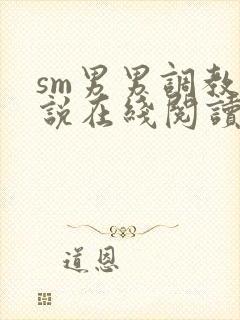 sm男男調教
説在綫閱讀
道恩